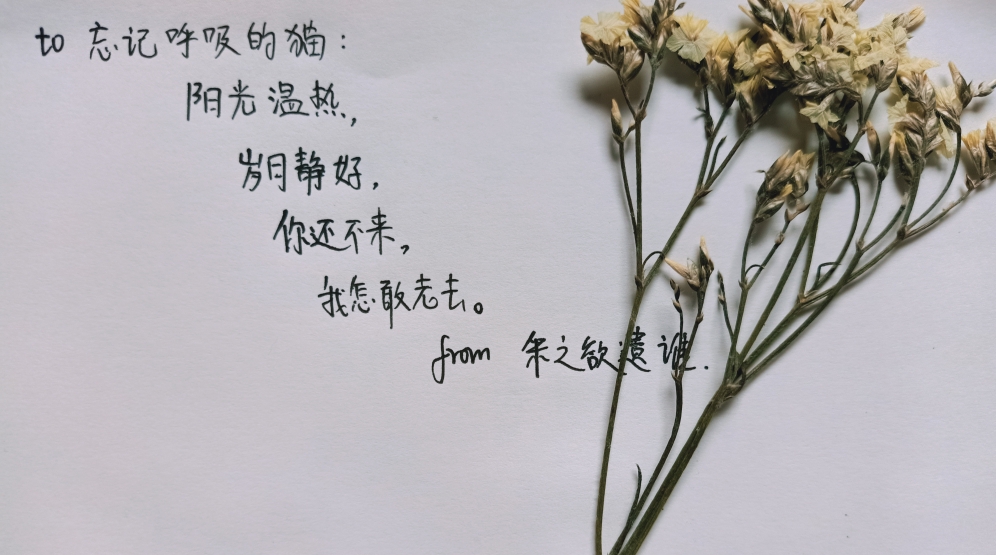 to 忘记呼吸的猫：
阳光温热，
岁月静好，
你还不来，
我怎敢老去。
from 采之欲遗谁.